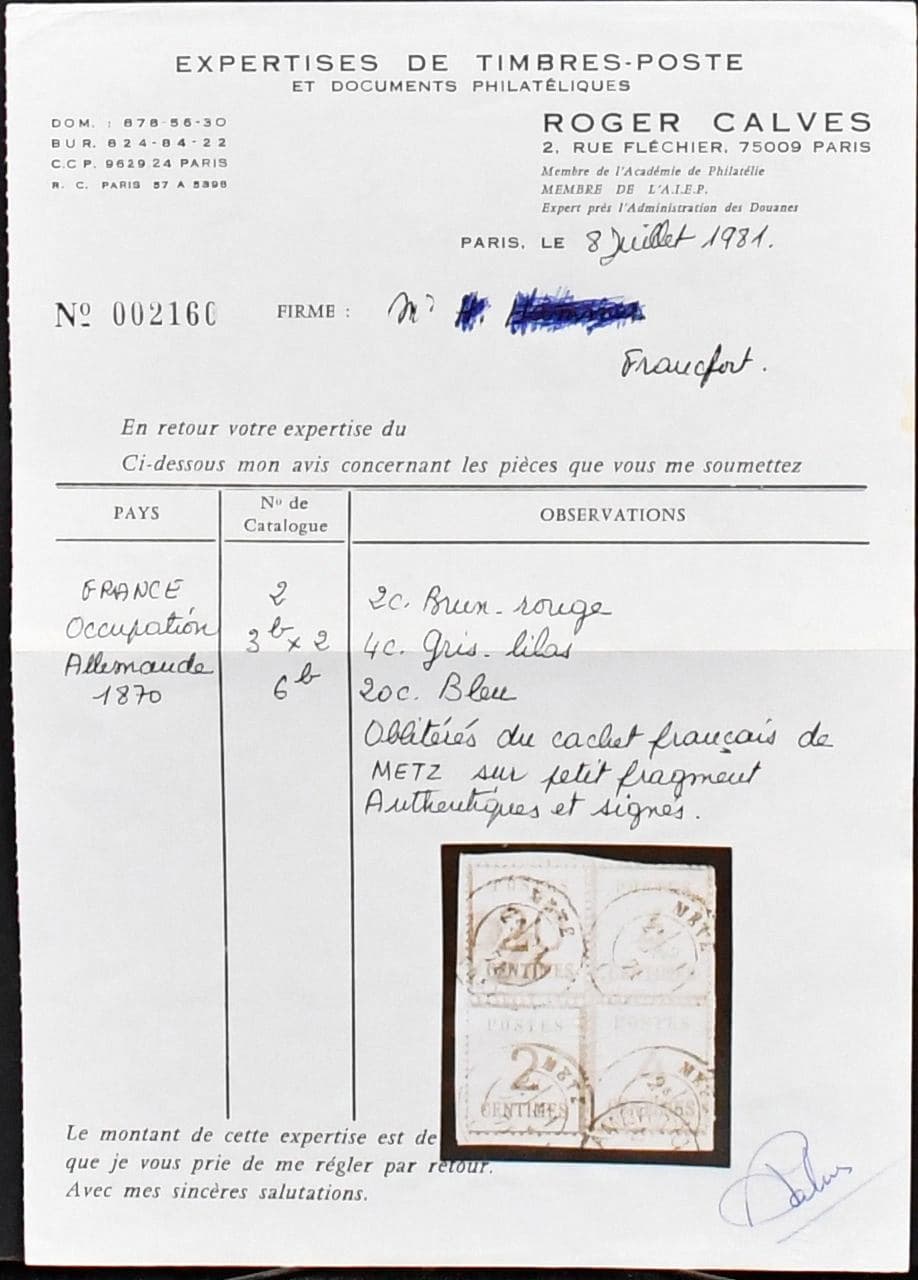 EXPERTISES DE TIMBRES-POSTE
ET DOCUMENTS PHILATÉLIQUES
DOM. : 878-56-30
BUR. 824-84-22
C.C P. 9629 24 PARIS
R. C. PARIS 57 A 5398
ROGER CALVES
2, RUE FLÉCHIER, 75009 PARIS
Membre de l'Académie de Philatélie
MEMBRE DE L'A.I.E.P.
Expert près l'Administration des Douanes
PARIS, LE 8 Juillet 1981.
Nº 002160 FIRME : Mr H.
Francfort.
En retour votre expertise du
Ci-dessous mon avis concernant les pièces que vous me soumettez
PAYS Nº de Catalogue OBSERVATIONS
FRANCE 2 2c. Brun-rouge
Occupation 3b x 2 4c. Gris-lilas
Allemande 6b 20c. Bleu
1870
Oblitérés du cachet français de
METZ sur petit fragment
Authentiques et signés.
POSTES POSTES
METZ METZ
2
CENTIMES CENTIMES
POSTES POSTES
2 METZ 4 METZ
CENTIMES CENTIMES
Le montant de cette expertise est de
que je vous prie de me régler par retour.
Avec mes sincères salutations.
Calves